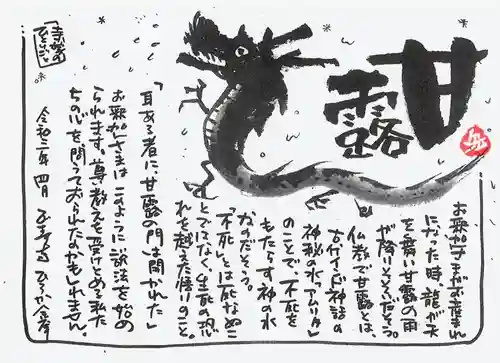 甘露
お釈迦さまがお生まれ
になった時、龍が天
を舞い甘露の雨
が降りそそいだそう。
仏教で甘露とは、
古代インド神話の
神秘な水「アムリタ」
のことで、不死を
もたらす神の水
なのだそう。
「不死」とは死なぬこ
とではなく、生死の恐
れを越えた悟りのこと。
「耳ある者に、甘露の門は開かれた」
お釈迦さまは このように説法を始め
られます。尊い教えを受けとめる私た
ちの心を問うておられたのかもしれません。
令和三年 四月
「寺報の
ひとりごと」